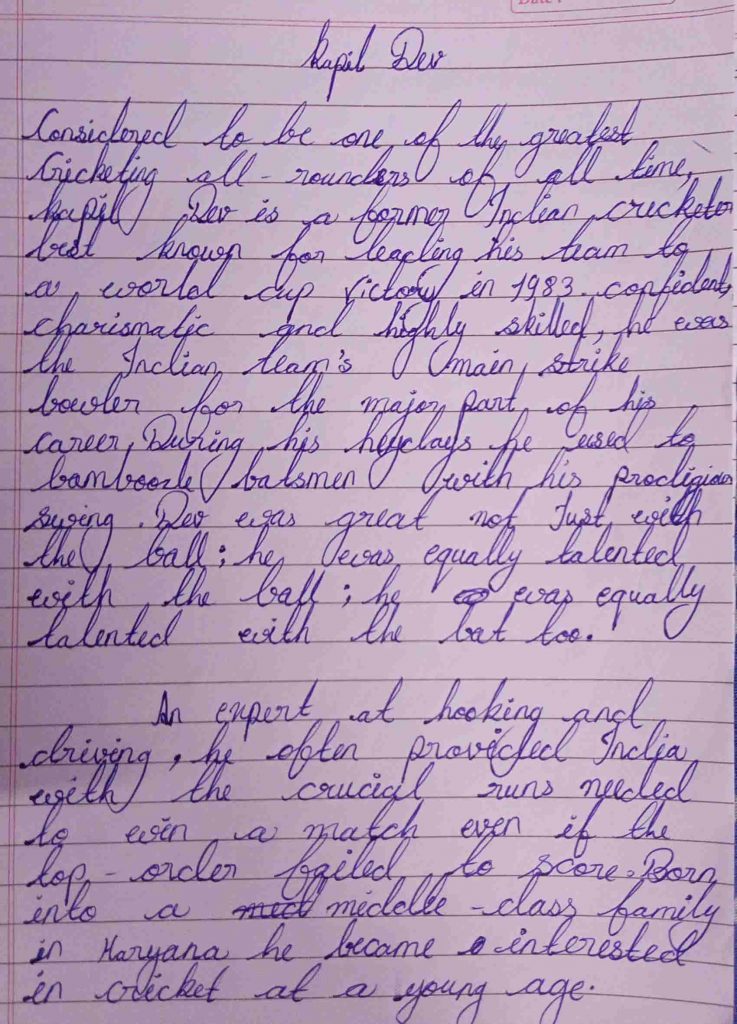 Kapil Dev
Considered to be one of the greatest
Cricketing all-rounders of all time,
kapil Dev is a former Indian cricketer
best known for leading his team to
a world cup victory in 1983. confident,
charismatic and highly skilled, he was
the Indian team's main strike
bowler for the major part of his
career, During his heydays he used to
bamboozle batsmen with his prodigious
swing. Dev was great not Just with
the ball; he was equally talented
with the ball; he was equally
talented with the bat too.
An expert at hooking and
driving, he often provided India
with the crucial runs needed
to win a match even if the
top-order failed to score. Born
into a middle-class family
in Haryana he became interested
in cricket at a young age.